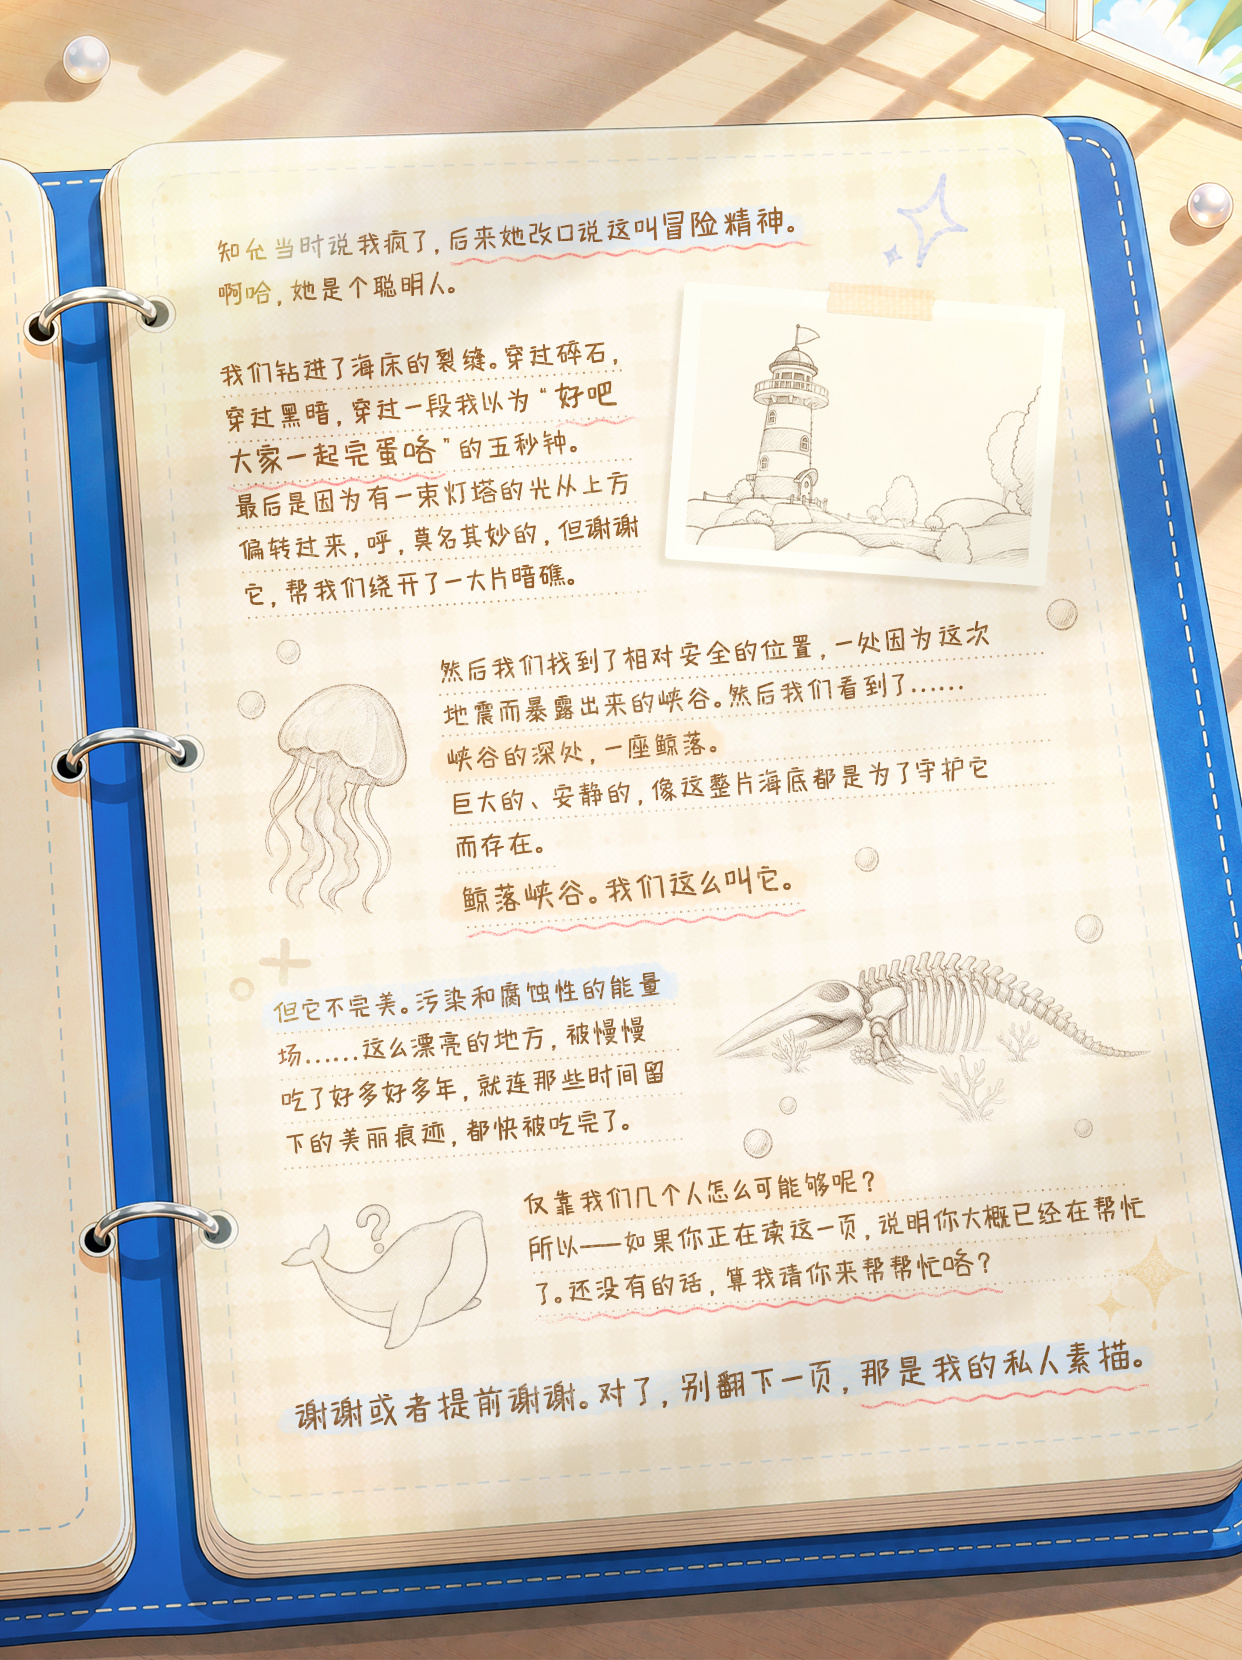 知允当时说我疯了，后来她改口说这叫冒险精神。
啊哈，她是个聪明人。
我们钻进了海床的裂缝。穿过碎石，
穿过黑暗，穿过一段我以为“好吧
大家一起完蛋咯”的五秒钟。
最后是因为有一束灯塔的光从上方
偏转过来，呼，莫名其妙的，但谢谢
它，帮我们绕开了一大片暗礁。
然后我们找到了相对安全的位置，一处因为这次
地震而暴露出来的峡谷。然后我们看到了……
峡谷的深处，一座鲸落。
巨大的、安静的，像这整片海底都是为了守护它
而存在。
鲸落峡谷。我们这么叫它。
但它不完美。污染和腐蚀性的能量
场……这么漂亮的地方，被慢慢
吃了好多好多年，就连那些时间留
下的美丽痕迹，都快被吃完了。
仅靠我们几个人怎么可能够呢？
所以——如果你正在读这一页，说明你大概已经在帮忙
了。还没有的话，算我请你来帮帮忙咯？
谢谢或者提前谢谢。对了，别翻下一页，那是我的私人素描。